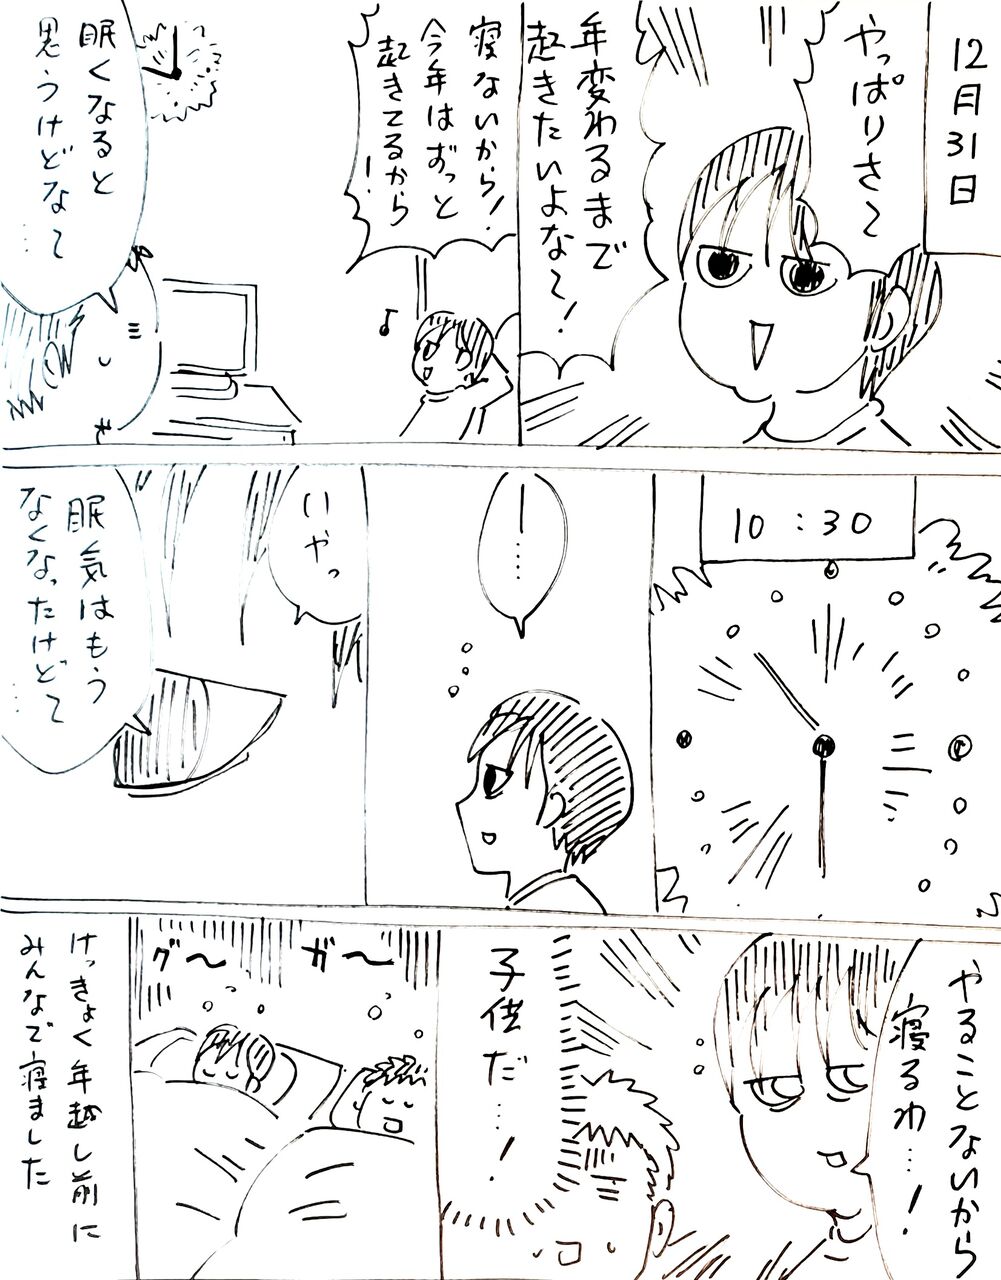 12月31日
やっぱりさ〜
年変わるまで
起きたいよな〜！
寝ないから！
今年はずっと
起きてるから！
眠くなると
思うけどな〜
…
10:30
一……
いやっ
眠気はもう
なくなったけど〜
…
やることないから
寝るわ…！
子供だ…！
ガ〜
グ〜
けっきょく年越し前に
みんなで寝ました